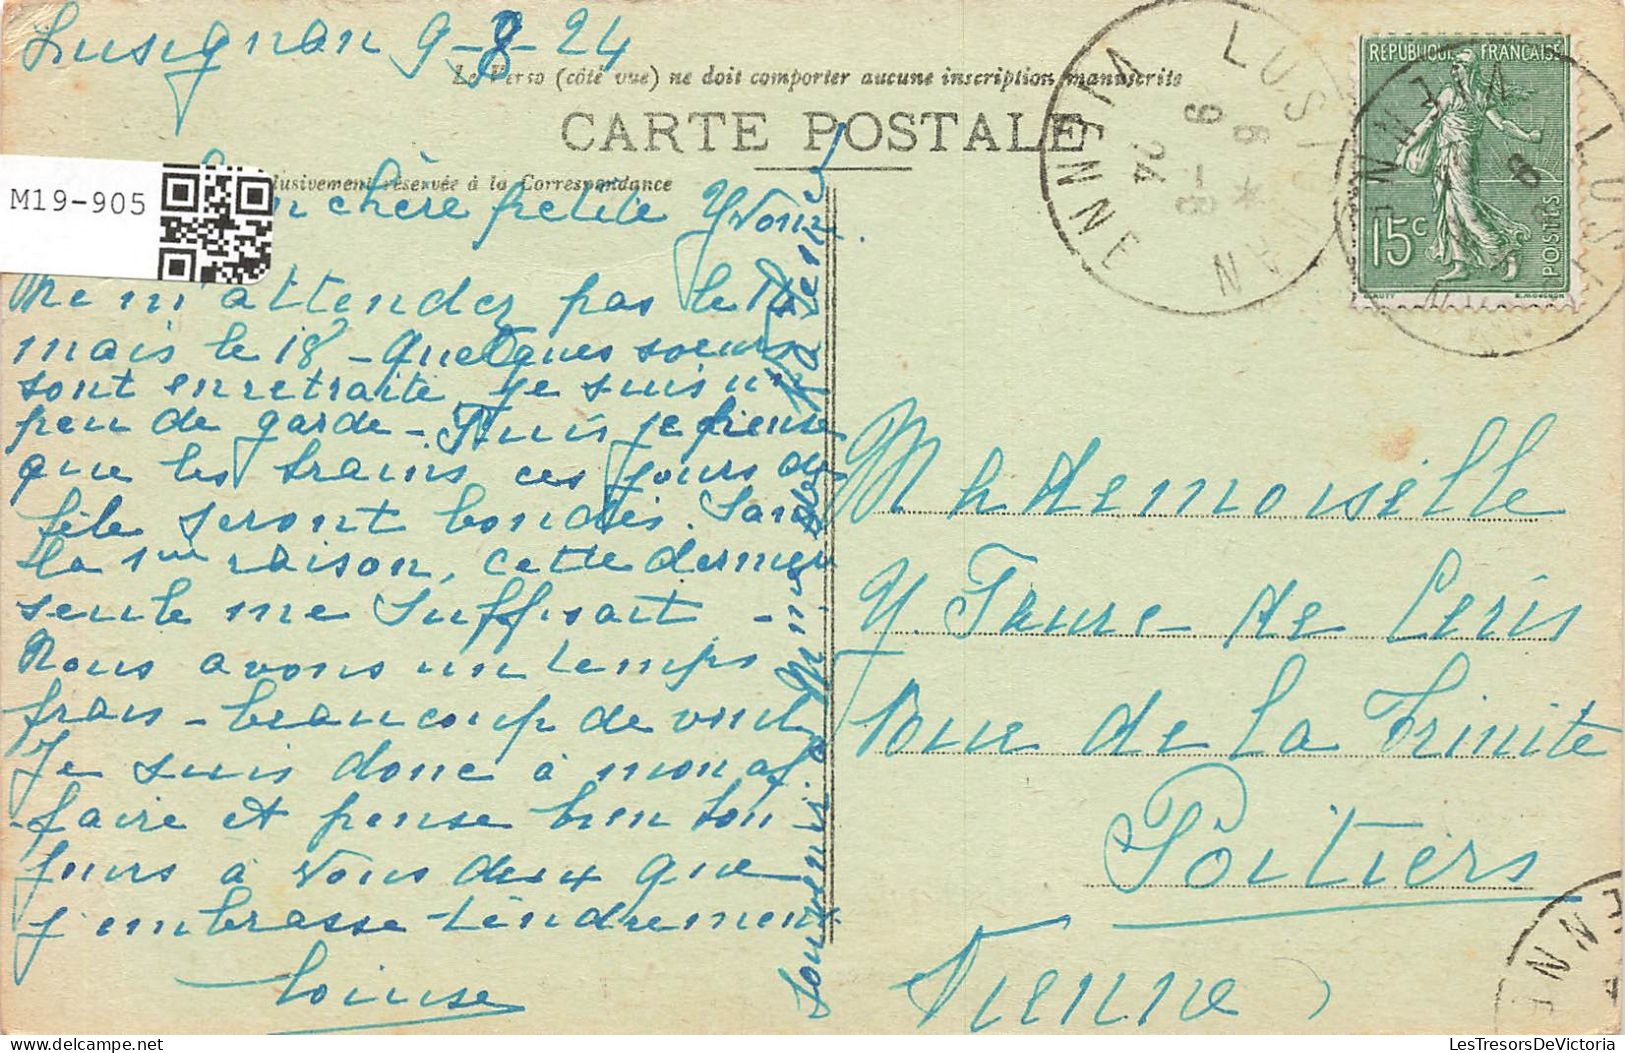 Lusignan 9-8-24
Le Verso (côté vue) ne doit comporter aucune inscription manuscrite
CARTE POSTALE
clusivement réservée à la Correspondance
M19-905
chère petite Yvonne
Ne m'attendez pas le
mais le 18 - quelques soeurs
sont en retraite je suis un
peu de garde - Puis je pense
que les trains ces jours de
fête seront bondés. Sans
la 1ère raison, cette dernière
seule me suffisait -
Nous avons un temps
frais - beaucoup de vent
Je suis donc à mon af-
-faire et pense bien tou-
jours à vous deux que
j'embrasse tendrement
Louise
Souvenirs à
REPUBLIQUE FRANÇAISE
15c
POSTES
LUSIGNAN
VIENNE
6 *
9 -8
24
Mademoiselle
Y. Faure de Ceris
Rue de la Trinité
Poitiers
Vienne
LesTresorsDeVictoria
delcampe.net